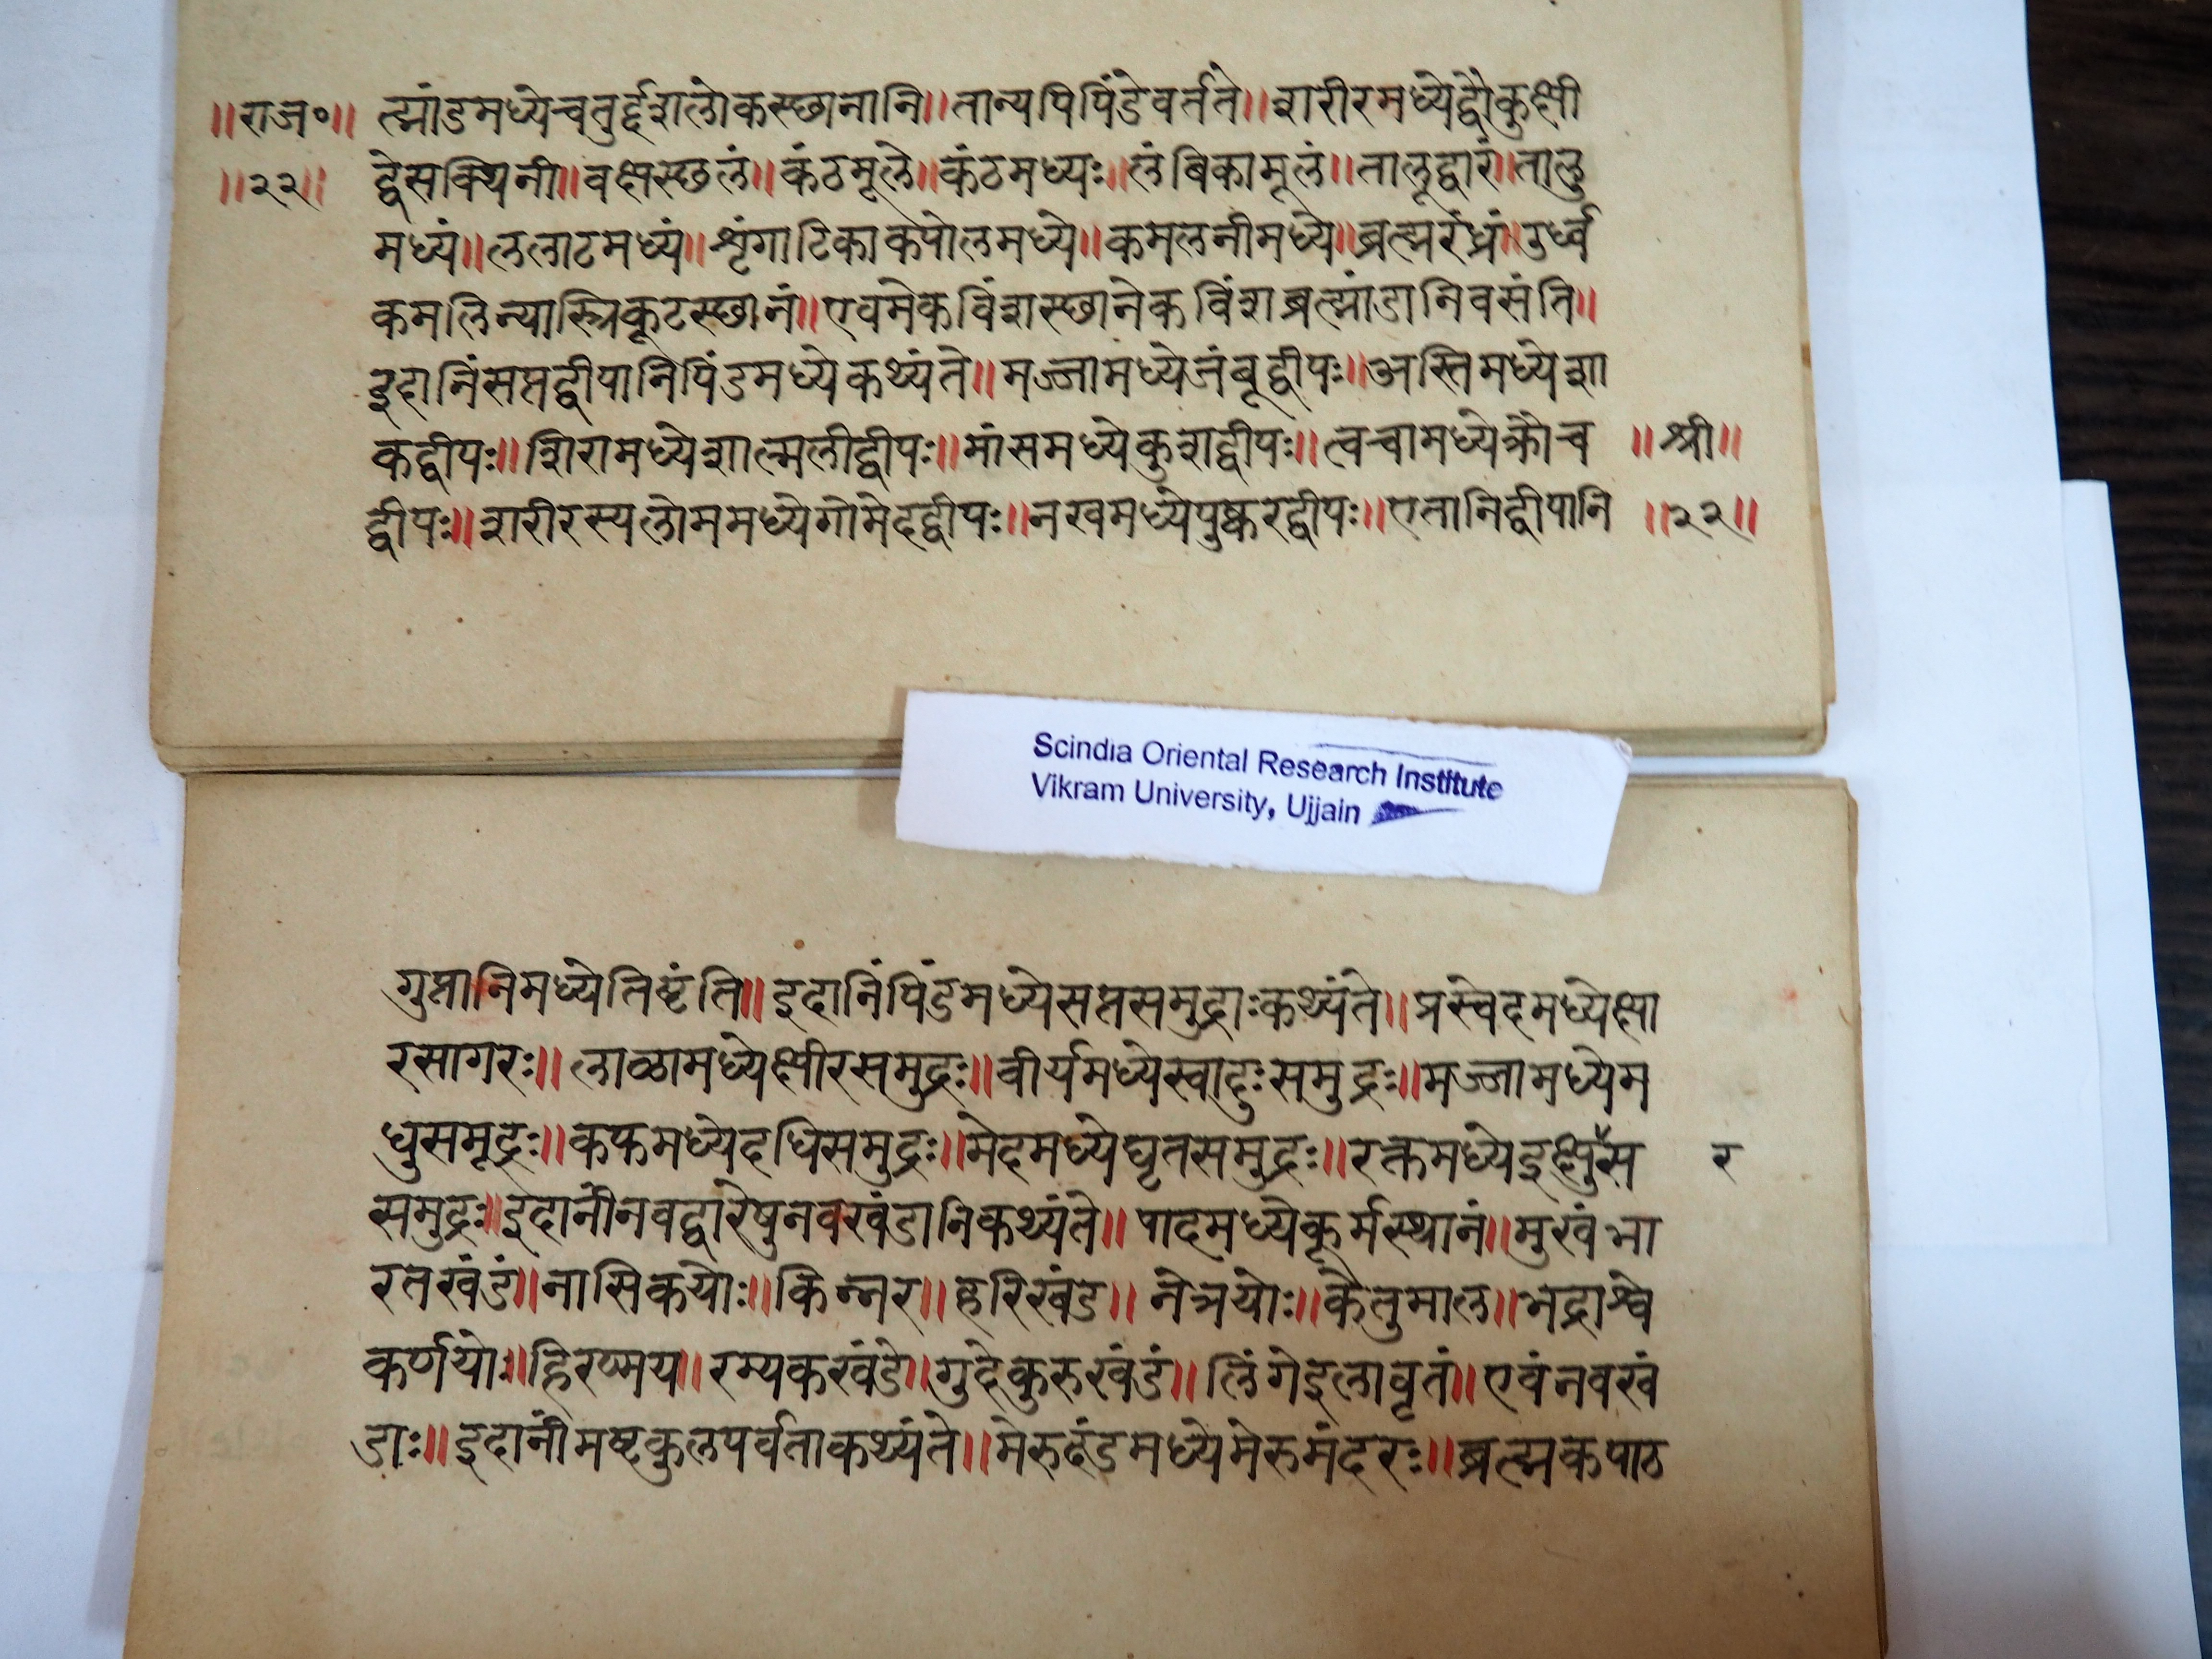 ॥राज॰॥ त्मांडमध्येचतुर्द्दशलोकस्छानानि॥तान्यपिपिंडेवर्तते॥शरीरमध्येद्वौकुक्षी
॥२२॥ द्वेसक्थिनी॥वक्षस्छलं॥कंठमूले॥कंठमध्यः॥लंबिकामूलं॥तालूद्वारं॥तालु
मध्यं॥ललाटमध्यं॥शृंगाटिकाकपोलमध्ये॥कमलनीमध्ये॥ब्रत्मरंध्रां॥उर्ध्व
कमलिन्यास्त्रिकूटस्छानं॥एवमेकविंशस्छानेकविंशब्रत्मांडानिवसंति॥
इहानिंसप्तद्वीपानिपिंडमध्येकथ्यंते॥मज्जामध्येजंबूद्वीपः॥अस्तिमध्येशा
कद्वीपः॥शिरामध्येशाल्मलीद्वीपः॥मांसमध्येकुशद्वीपः॥त्वचामध्येक्रौंच ॥श्री॥
द्वीपः॥शरीरस्यलोममध्येगोमेदद्वीपः॥नखमध्येपुष्करद्वीपः॥एतानिद्वीपानि ॥२२॥
Scindia Oriental Research Institute
Vikram University, Ujjain
गुप्तानिमध्येतिष्टंति॥इदानिंपिंडमध्येसप्तसमुद्राःकथ्यंते॥प्रस्वेदमध्येक्षा
रसागरः॥लाळामध्येक्षीरसमुद्रः॥वीर्यमध्येस्वादुःसमुद्रः॥मज्जामध्येम
धुसमूद्रः॥कफमध्येदधिसमुद्रः॥मेदमध्येघृतसमुद्रः॥रक्तमध्येइक्षुस र
समुद्रः॥इदानींनवद्वारेषुनवखंडानिकथ्यंते॥पादमध्येकूर्मस्थानं॥मुखंभा
रतखंडं॥नासिकयोः॥किन्नर॥हरिखंड॥नेत्रयोः॥केतुमाल॥भद्राश्वे
कर्णयोः॥हिरण्मय॥रम्यकखंडे॥गुदेकुरुखंडं॥लिंगेइलावृतं॥एवंनवखं
डाः॥इदानींमष्टकुलपर्वताकथ्यंते॥मेरुदंडमध्येमेरुमंदरः॥ब्रत्मकपाठ